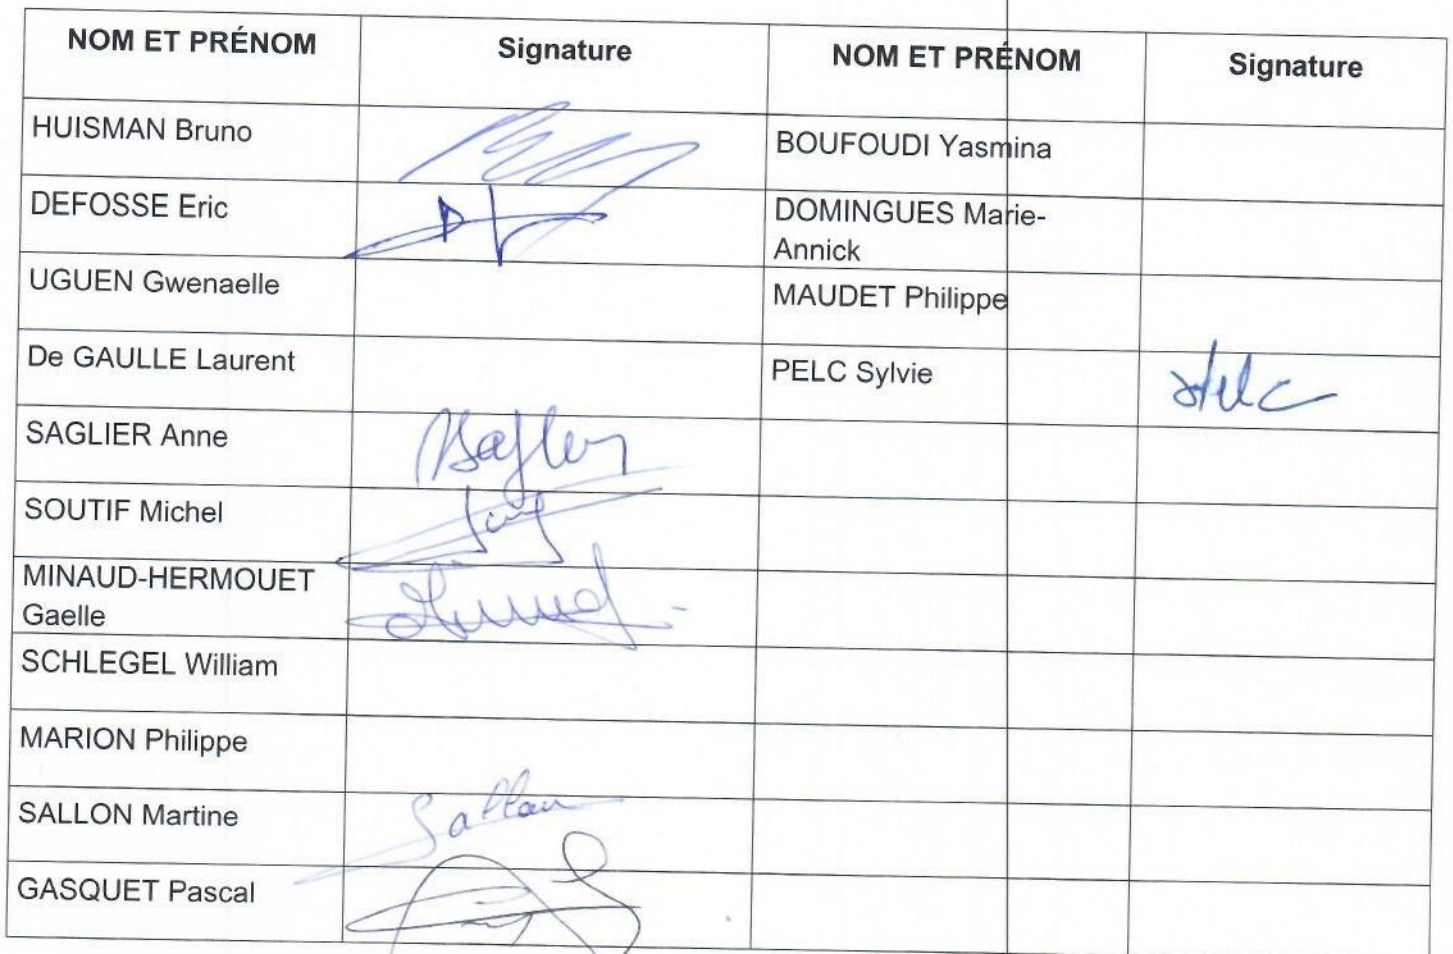 NOM ET PRÉNOM Signature NOM ET PRÉNOM Signature
HUISMAN Bruno BOUFOUDI Yasmina
DEFOSSE Eric DOMINGUES Marie-
Annick
UGUEN Gwenaelle MAUDET Philippe
De GAULLE Laurent PELC Sylvie
SAGLIER Anne
SOUTIF Michel
MINAUD-HERMOUET
Gaelle
SCHLEGEL William
MARION Philippe
SALLON Martine Sallon
GASQUET Pascal